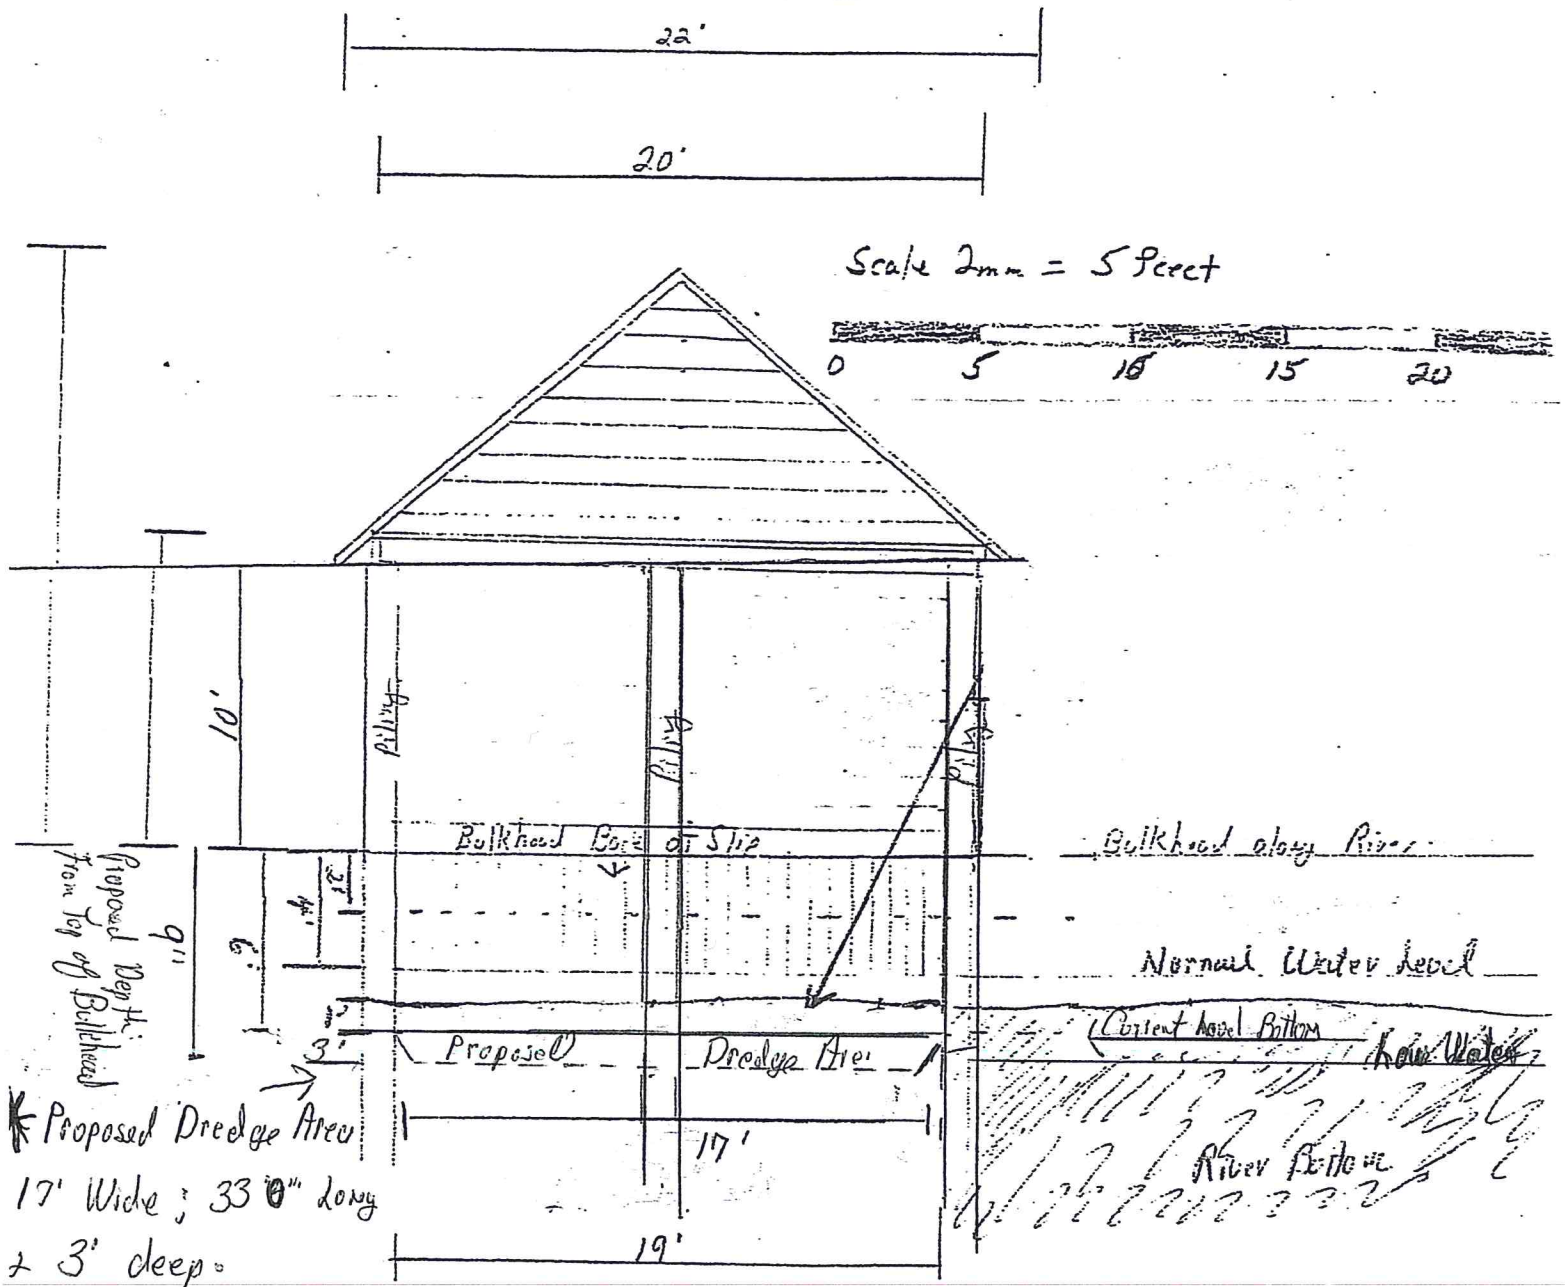 22'
20'
Scale 2mm = 5 feeet
0 5 10 15 20
10'
Piling
Piling
Piling
Bulkhead Back of Slip
Bulkhead along River
2'
4'
6'
9"
Proposed Depth
From Top of Bulkhead
Normal Water Level
Current Level Bottom
Low Water
3'
Proposed Dredge Area
17'
River Bottom
* Proposed Dredge Area
17' Wide ; 33 0" Long
+ 3' deep.
19'